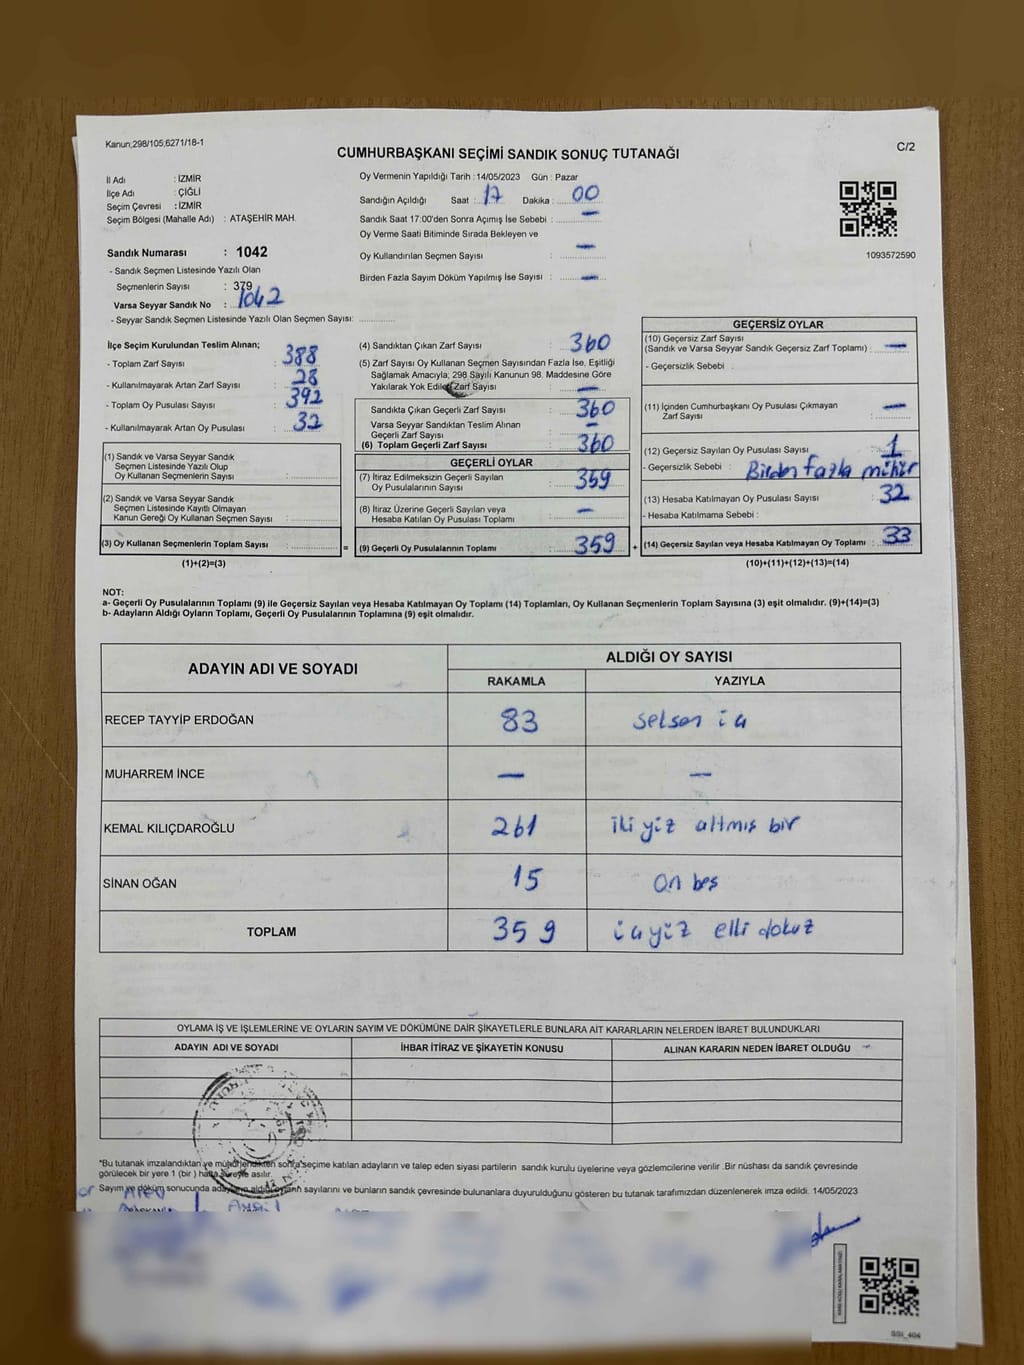 Kanun;298/105;6271/18-1
C/2
CUMHURBAŞKANI SEÇİMİ SANDIK SONUÇ TUTANAĞI
İl Adı : İZMİR
İlçe Adı : ÇİĞLİ
Seçim Çevresi : İZMİR
Seçim Bölgesi (Mahalle Adı) : ATAŞEHİR MAH.
Sandık Numarası : 1042
- Sandık Seçmen Listesinde Yazılı Olan
Seçmenlerin Sayısı : 379
Varsa Seyyar Sandık No : 1042
- Seyyar Sandık Seçmen Listesinde Yazılı Olan Seçmen Sayısı:
Oy Vermenin Yapıldığı Tarih : 14/05/2023 Gün : Pazar
Sandığın Açıldığı Saat : 17 Dakika : 00
Sandık Saat 17:00'den Sonra Açımış İse Sebebi : —
Oy Verme Saati Bitiminde Sırada Bekleyen ve
Oy Kullandırılan Seçmen Sayısı : —
Birden Fazla Sayım Döküm Yapılmış İse Sayısı : —
1093572590
İlçe Seçim Kurulundan Teslim Alınan;
- Toplam Zarf Sayısı : 388
- Kullanılmayarak Artan Zarf Sayısı : 28
- Toplam Oy Pusulası Sayısı : 392
- Kullanılmayarak Artan Oy Pusulası : 32
(1) Sandık ve Varsa Seyyar Sandık
Seçmen Listesinde Yazılı Olup
Oy Kullanan Seçmenlerin Sayısı :
(2) Sandık ve Varsa Seyyar Sandık
Seçmen Listesinde Kayıtlı Olmayan
Kanun Gereği Oy Kullanan Seçmen Sayısı :
(3) Oy Kullanan Seçmenlerin Toplam Sayısı : =
(1)+(2)=(3)
(4) Sandıktan Çıkan Zarf Sayısı : 360
(5) Zarf Sayısı Oy Kullanan Seçmen Sayısından Fazla İse, Eşitliği
Sağlamak Amacıyla; 298 Sayılı Kanunun 98. Maddesine Göre
Yakılarak Yok Edilen Zarf Sayısı : —
Sandıkta Çıkan Geçerli Zarf Sayısı : 360
Varsa Seyyar Sandıktan Teslim Alınan
Geçerli Zarf Sayısı : —
(6) Toplam Geçerli Zarf Sayısı : 360
GEÇERLİ OYLAR
(7) İtiraz Edilmeksizin Geçerli Sayılan
Oy Pusulalarının Sayısı : 359
(8) İtiraz Üzerine Geçerli Sayılan veya
Hesaba Katılan Oy Pusulası Toplamı : —
(9) Geçerli Oy Pusulalarının Toplamı : 359 +
GEÇERSİZ OYLAR
(10) Geçersiz Zarf Sayısı
(Sandık ve Varsa Seyyar Sandık Geçersiz Zarf Toplamı) : —
- Geçersizlik Sebebi :
(11) İçinden Cumhurbaşkanı Oy Pusulası Çıkmayan
Zarf Sayısı : —
(12) Geçersiz Sayılan Oy Pusulası Sayısı : 1
- Geçersizlik Sebebi : Birden fazla mühür
(13) Hesaba Katılmayan Oy Pusulası Sayısı : 32
- Hesaba Katılmama Sebebi :
(14) Geçersiz Sayılan veya Hesaba Katılmayan Oy Toplamı : 33
(10)+(11)+(12)+(13)=(14)
NOT:
a- Geçerli Oy Pusulalarının Toplamı (9) ile Geçersiz Sayılan veya Hesaba Katılmayan Oy Toplamı (14) Toplamları, Oy Kullanan Seçmenlerin Toplam Sayısına (3) eşit olmalıdır. (9)+(14)=(3)
b- Adayların Aldığı Oyların Toplamı, Geçerli Oy Pusulalarının Toplamına (9) eşit olmalıdır.
ADAYIN ADI VE SOYADI ALDIĞI OY SAYISI
RAKAMLA YAZIYLA
RECEP TAYYİP ERDOĞAN 83 selsen üç
MUHARREM İNCE — —
KEMAL KILIÇDAROĞLU 261 iki yüz altmış bir
SİNAN OĞAN 15 on beş
TOPLAM 359 üçyüz elli dokuz
OYLAMA İŞ VE İŞLEMLERİNE VE OYLARIN SAYIM VE DÖKÜMÜNE DAİR ŞİKAYETLERLE BUNLARA AİT KARARLARIN NELERDEN İBARET BULUNDUKLARI
ADAYIN ADI VE SOYADI İHBAR İTİRAZ VE ŞİKAYETİN KONUSU ALINAN KARARIN NEDEN İBARET OLDUĞU
*Bu tutanak imzalandıktan ve mühürlendikten sonra seçime katılan adayların ve talep eden siyasi partilerin sandık kurulu üyelerine veya gözlemcilerine verilir .Bir nüshası da sandık çevresinde
görülecek bir yere 1 (bir ) hafta süreyle asılır.
Sayım ve döküm sonucunda adayların aldığı oyların sayılarını ve bunların sandık çevresinde bulunanlara duyurulduğunu gösteren bu tutanak tarafımızdan düzenlenerek imza edildi. 14/05/2023
SSI_404